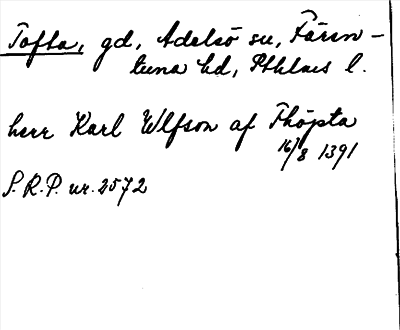 Tofta, gd, Adelsö sn, Fären-
tuna hd, Sthlms l.
herr Karl Ulfson af Thöpta
16/8 1391
S.R.P. nr. 2572